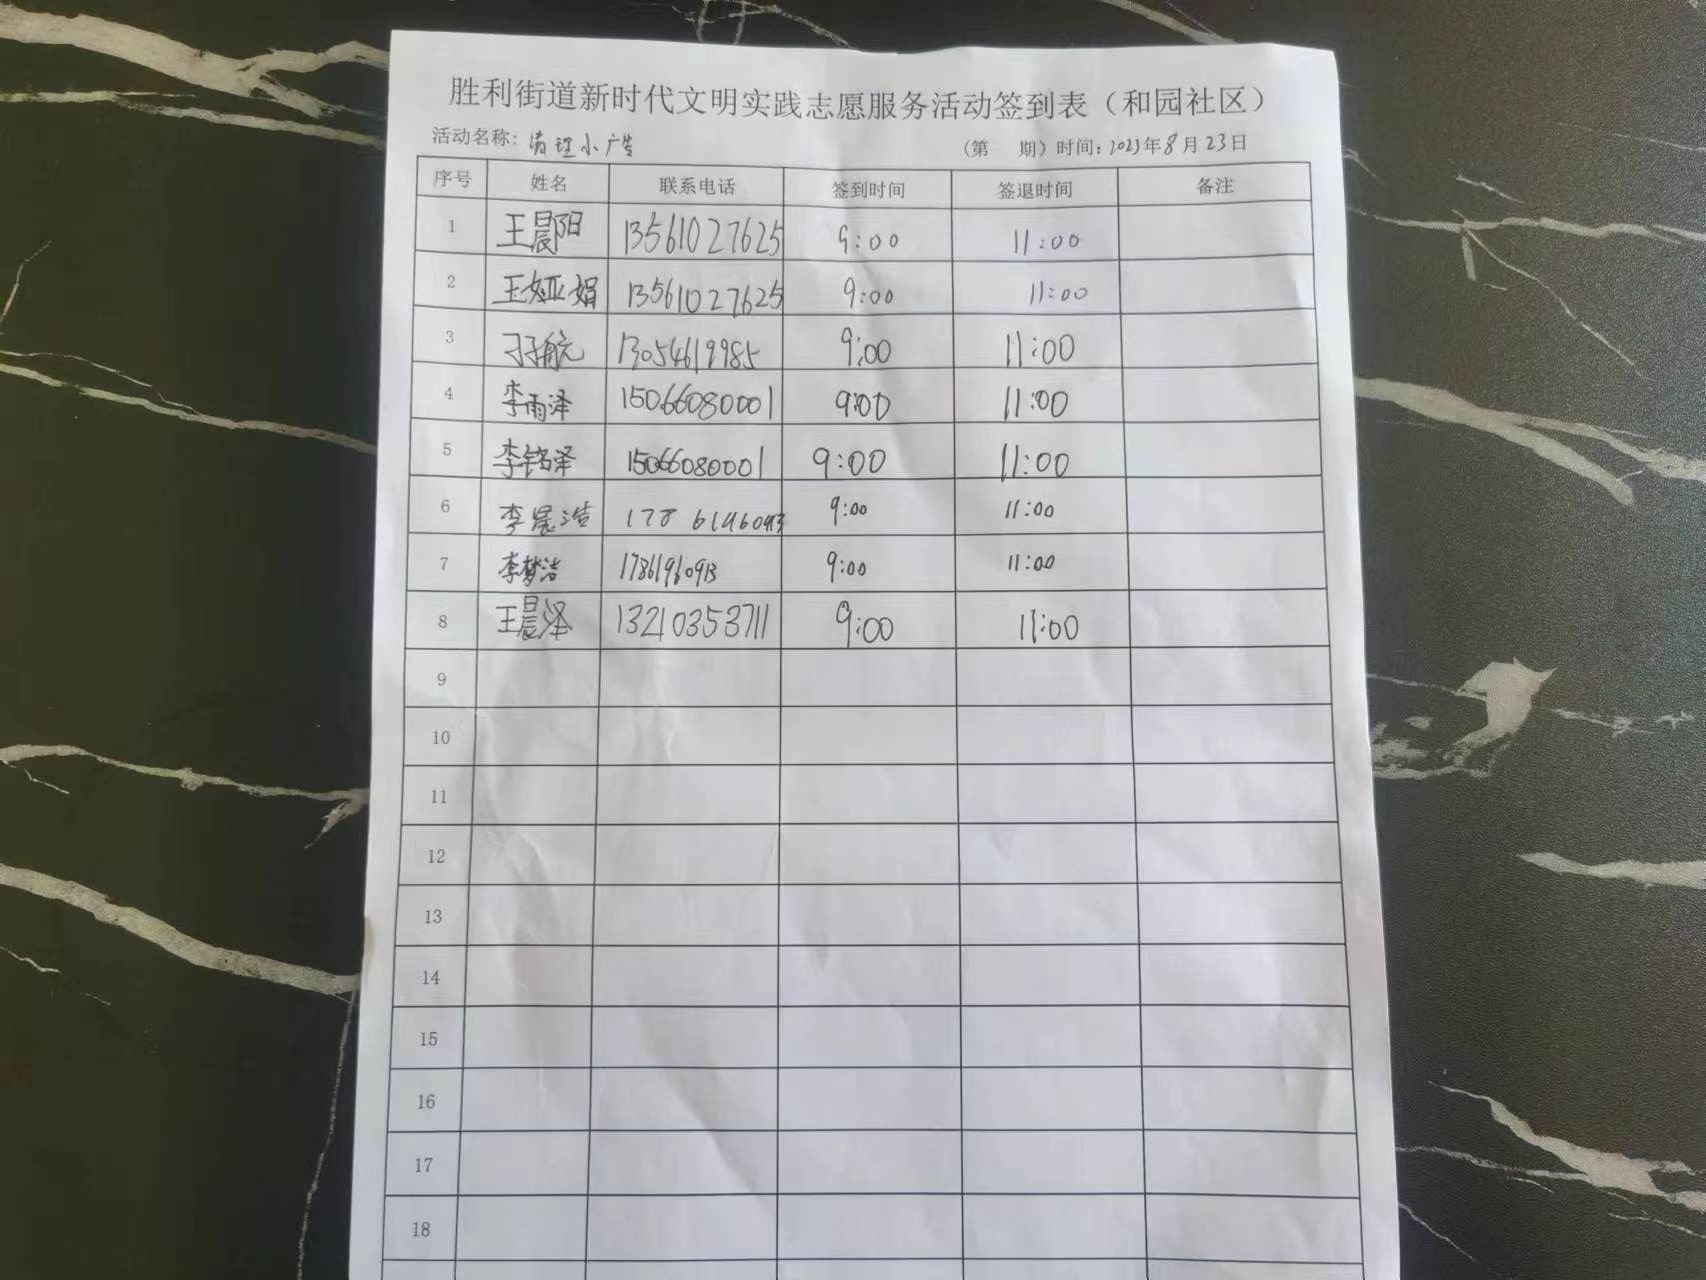 胜利街道新时代文明实践志愿服务活动签到表（和园社区）
活动名称：清理小广告 （第 期）时间：2023年8月23日
序号 姓名 联系电话 签到时间 签退时间 备注
1 王晨阳 13561027625 9:00 11:00
2 王娅娟 13561027625 9:00 11:00
3 于航 13054619985 9:00 11:00
4 李雨泽 15066080001 9:00 11:00
5 李铭泽 15066080001 9:00 11:00
6 李晨浩 9:00 11:00
7 李梦洁 9:00 11:00
8 王晨泽 13210353711 9:00 11:00
9
10
11
12
13
14
15
16
17
18